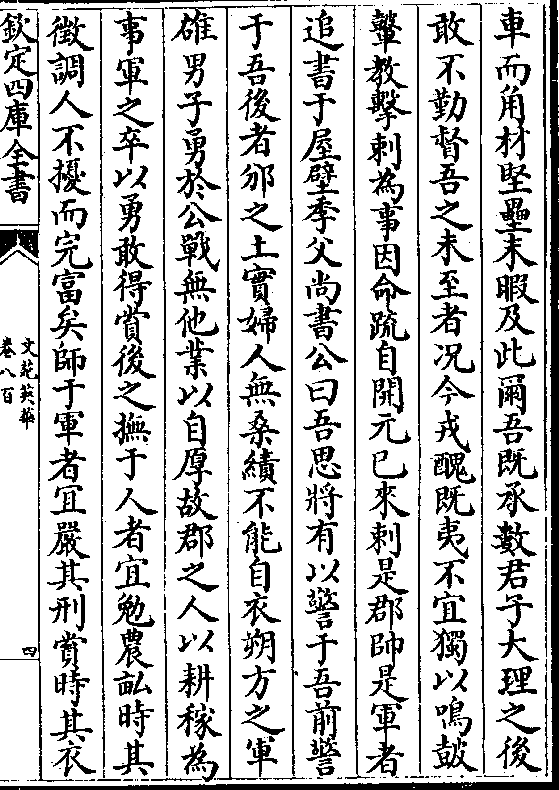 車而角材堅壘未暇及此爾吾既承數君子大理之後
敢不勤督吾之未至者况今戎醜既夷不宜獨以鳴鼓
鼙教擊刺為事因命䟽自開元已來刺是郡帥是軍者
追書于屋壁季父尚書公曰吾思將有以警于吾前警
于吾後者邠之土實婦人無桑績不能自衣朔方之軍
雄男子勇於公戰無他業以自厚故郡之人以耕稼為
事軍之卒以勇敢得賞後之撫于人者宜勉農畝時其
徵調人不擾而完富矣師于軍者宜嚴其刑賞時其衣
欽定四庫全書
文苑英華
卷八百
四